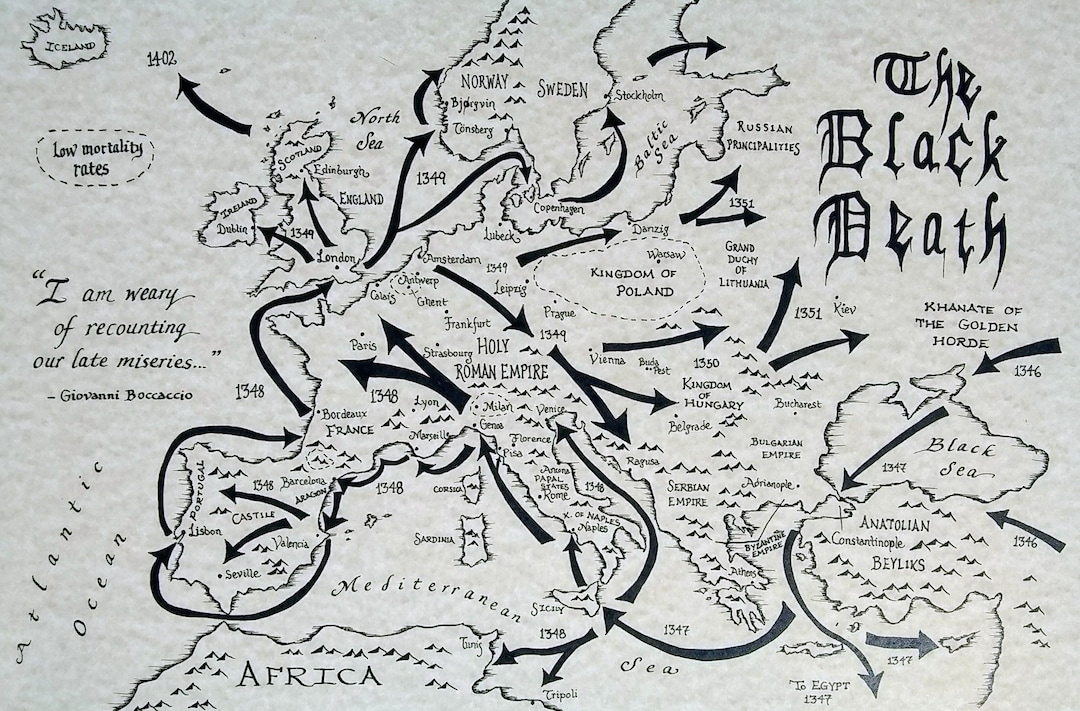 The
Black
Death
ICELAND
1402
Low mortality
rates
"I am weary
of recounting
our late miseries..."
- Giovanni Boccaccio
North
Sea
NORWAY
Bjørgvin
Tönsberg
SWEDEN
Stockholm
Baltic
Sea
RUSSIAN
PRINCIPALITIES
SCOTLAND
Edinburgh
ENGLAND
IRELAND
Dublin
1349
London
1349
Copenhagen
Lubeck
Danzig
1351
Amsterdam
1349
Antwerp
Calais
Ghent
Leipzig
Warsaw
KINGDOM OF
POLAND
GRAND
DUCHY
OF
LITHUANIA
Prague
Frankfurt
1349
1351
Kiev
KHANATE OF
THE GOLDEN
HORDE
1346
Paris
Strasbourg
HOLY
ROMAN EMPIRE
Vienna
Buda
Pest
1350
KINGDOM
OF
HUNGARY
Bucharest
1348
1348
Bordeaux
FRANCE
Lyon
Milan
Genoa
Venice
Belgrade
Marseille
Florence
Pisa
Ragusa
BULGARIAN
EMPIRE
Black
Sea
1347
PORTUGAL
1348
Barcelona
ARAGON
1348
CORSICA
Ancona
PAPAL
STATES
Rome
1348
SERBIAN
EMPIRE
Adrianople
CASTILE
Lisbon
Valencia
Seville
SARDINIA
K. OF NAPLES
Naples
BYZANTINE
EMPIRE
Athens
ANATOLIAN
Constantinople
BEYLIKS
1346
Atlantic
Ocean
Mediterranean
Sea
SICILY
1348
1347
1347
Tunis
Tripoli
AFRICA
To EGYPT
1347